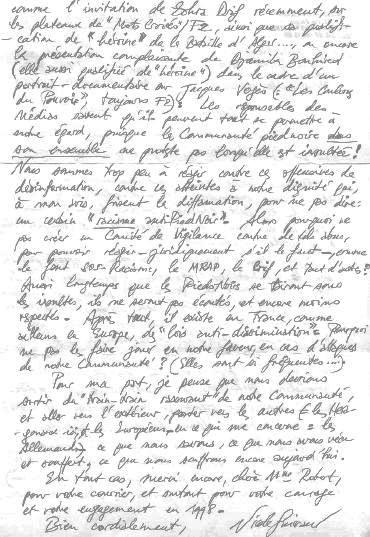 comme l'invitation de Zohra Drif récemment, sur
les plateaux de "Mots Croisés"/F2, ainsi que sa qualifi-
cation de "héroïne" de la Bataille d'Alger...., ou encore
la présentation complaisante de Djamila Bouhired
(elle aussi qualifiée de "héroïne") dans le cadre d'un
portrait-documentaire sur Jacques Vergès ("Les
du Pouvoir", toujours F2)! Les responsables des
Médias savent qu'ils peuvent tout se permettre à
notre égard, puisque la Communauté pied noire dans
son ensemble ne proteste pas lorsqu'elle est insultée!
Nous sommes trop peu à réagir contre ces offensives de
désinformation, contre ces atteintes à notre dignité qui,
à mon avis, frisent la diffamation, pour ne pas dire:
un certain "racisme anti-Pied Noir". Alors pourquoi ne
pas créer un Comité de Vigilance contre de tels abus,
pour pouvoir réagir - juridiquement s'il le faut -, comme
le font SOS-Racisme, le MRAP, le Crif, et tant d'autres?
Aussi longtemps que les Pieds-Noirs se tairont sous
les insultes, ils ne seront pas écoutés, et encore moins
respectés. Après tout, il existe en France, comme
ailleurs en Europe, des "lois anti-discrimination". Pourquoi
ne pas le faire jouer en notre faveur, en cas d'attaques
de notre Communauté? (Elles sont si fréquentes....)
Pour ma part, je pense que nous devrions
sortir du "train-train rassurant" de notre Communauté,
et aller vers l'extérieur, parler vers les autres (les Mé-
et les Européens, en ce qui me concerne: les
Allemands) ce que nous savons, ce que nous avons vécu
et souffert, ce que nous souffrons encore aujourd'hui.
En tout cas, merci encore, chère Mme Rabot,
pour votre courrier, et surtout pour votre courage
et votre engagement en 1998.
Bien cordialement, Nicole